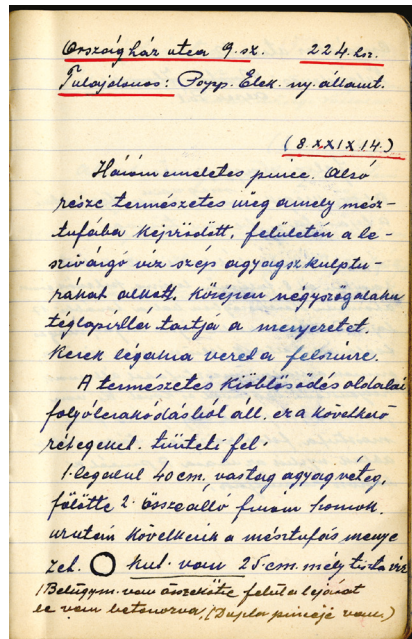 Országház utca 9. sz. 224. hsz.
Tulajdonos: Popp. Elek. ny. államt.
(8.XXIX.14.)
Három emeletes pince. Alsó
része természetes üreg amely mész-
tufába képződött, felületén a le-
szivárgó viz szép agyagszkulptu-
rákat alkott. Középen négyszögalaku
téglapillér tartja a menyezetet.
Kerek légakna vezet a felszinre.
A természetes kiöblösödés oldalai
folyólerakódásból áll. ez a következő
rétegeket. tünteti fel.
1. legalul 40 cm. vastag agyagréteg,
fölötte 2. összeálló finom homok.
azután következik a mésztufás menye
zet. kut. van 25 cm. mély tiszta viz
(Belügym. van összekötve felül a lejárat
be van betonozva. (Dupla pincéje van.)